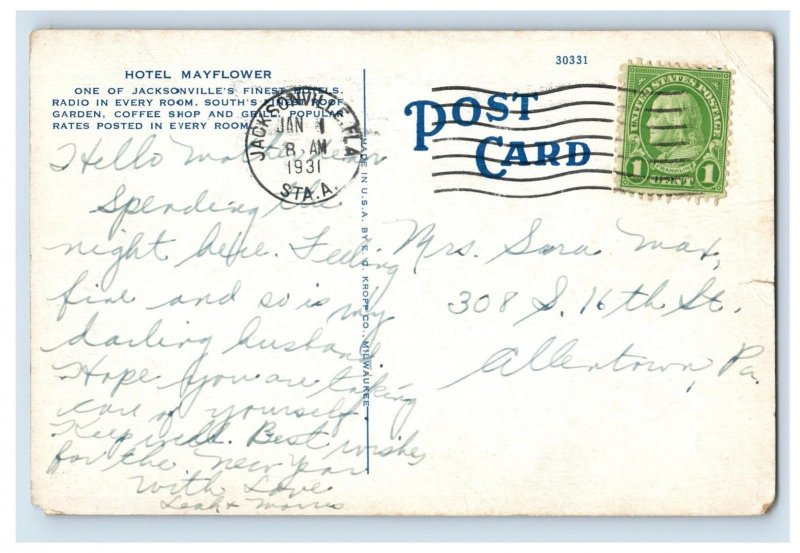 HOTEL MAYFLOWER
ONE OF JACKSONVILLE'S FINEST HOTELS.
RADIO IN EVERY ROOM. SOUTH'S FINEST ROOF
GARDEN, COFFEE SHOP AND GRILL. POPULAR
RATES POSTED IN EVERY ROOM.
30331
POST
CARD
JACKSONVILLE, FLA.
JAN 1
8 AM
1931
STA. A.
UNITED STATES POSTAGE
FRANKLIN
1 CENT 1
MADE IN U.S.A. BY E. C. KROPP CO., MILWAUKEE
Hello mother dear
Spending the
night here. Feeling
fine and so is my
darling husband.
Hope you are taking
care of yourself.
Keep well. Best wishes
for the New Year
With Love
Leah & Morris
Mrs. Sara Max,
308 S. 16th St.
Allentown, Pa.